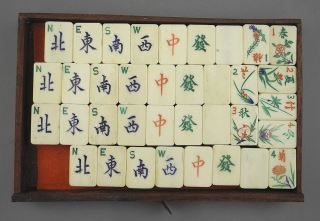 N E S W
北 東 南 西 中 發 1
N E S W
北 東 南 西 中 發 2 2
N E S W 3
北 東 南 西 中 發 3 秋 4
N E S W 4
北 東 南 西 中 發 菊